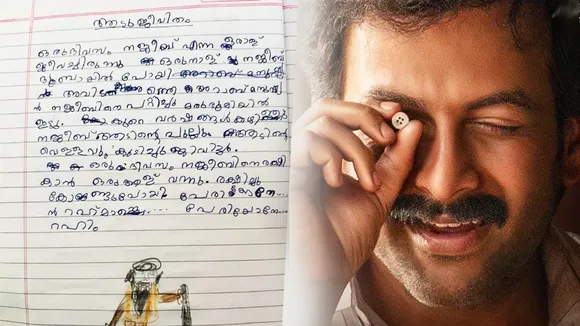 ആടുജീവിതം
ഒരുദിവസം നജീബ് എന്ന ഒരാള്
ജീവിച്ചിരുന്നു ഒരുനാള് നജീബ്
ദുബായിൽ പോയി
അവിടത്തെ അറബി
ൻ നജീബിനെ പറ്റിച്ച് മരുഭൂമിയിൽ
ഇട്ടു. കുറേ വർഷങ്ങൾ കഴിഞ്ഞു
നജീബ് ആടിന്റെ പാലും ആടിന്റെ
വെള്ളവും കുടിച്ച് ജീവിച്ചു.
ഒരു ദിവസം നജീബിനെ രക്ഷി
കാൻ ഒരാള് വന്നു. രക്ഷിച്ചു
കൊണ്ടുപോയി പെരിയോനേ...
ൻ റഹ്മാനേ... പെരിയോനേ..
റഹിം